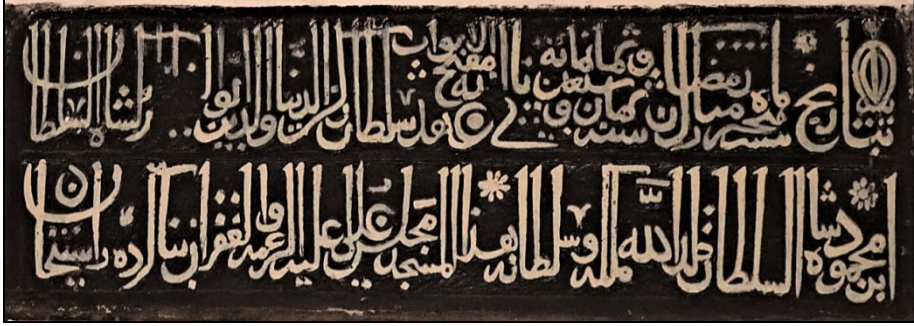 بتاريخ ماه مبارك رمضان سنه ثمان و سبعين و ثمانمائة يا مفتح الابواب في عهد سلطان ركن الدنيا والدين ابوا ربكشاه السلطان
ابن محمود شاه السلطان خلد الله ملكه وسلطانه بهذا المسجد مجلس عليه الرحمة والغفران بنا كرده